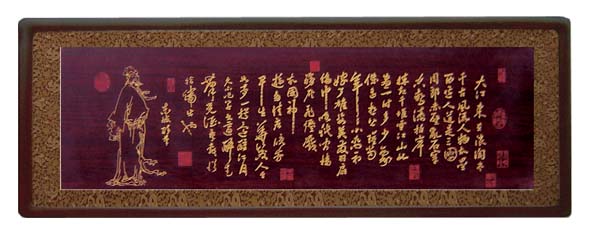 大江東去浪淘盡
千古風流人物故壘
西邊人道是三國
周郎赤壁亂石穿空
驚濤拍岸
捲起千堆雪江山如
畫一時多少豪
傑遙想公瑾當
年小喬初
嫁了雄姿英發羽扇
綸巾談笑間檣
艣灰飛煙滅
故國神
遊多情應笑我
早生華髮人生
如夢一樽還酹江月
久不作草書適乘醉走
筆覺酒氣勃勃從
指端出也
東坡醉筆